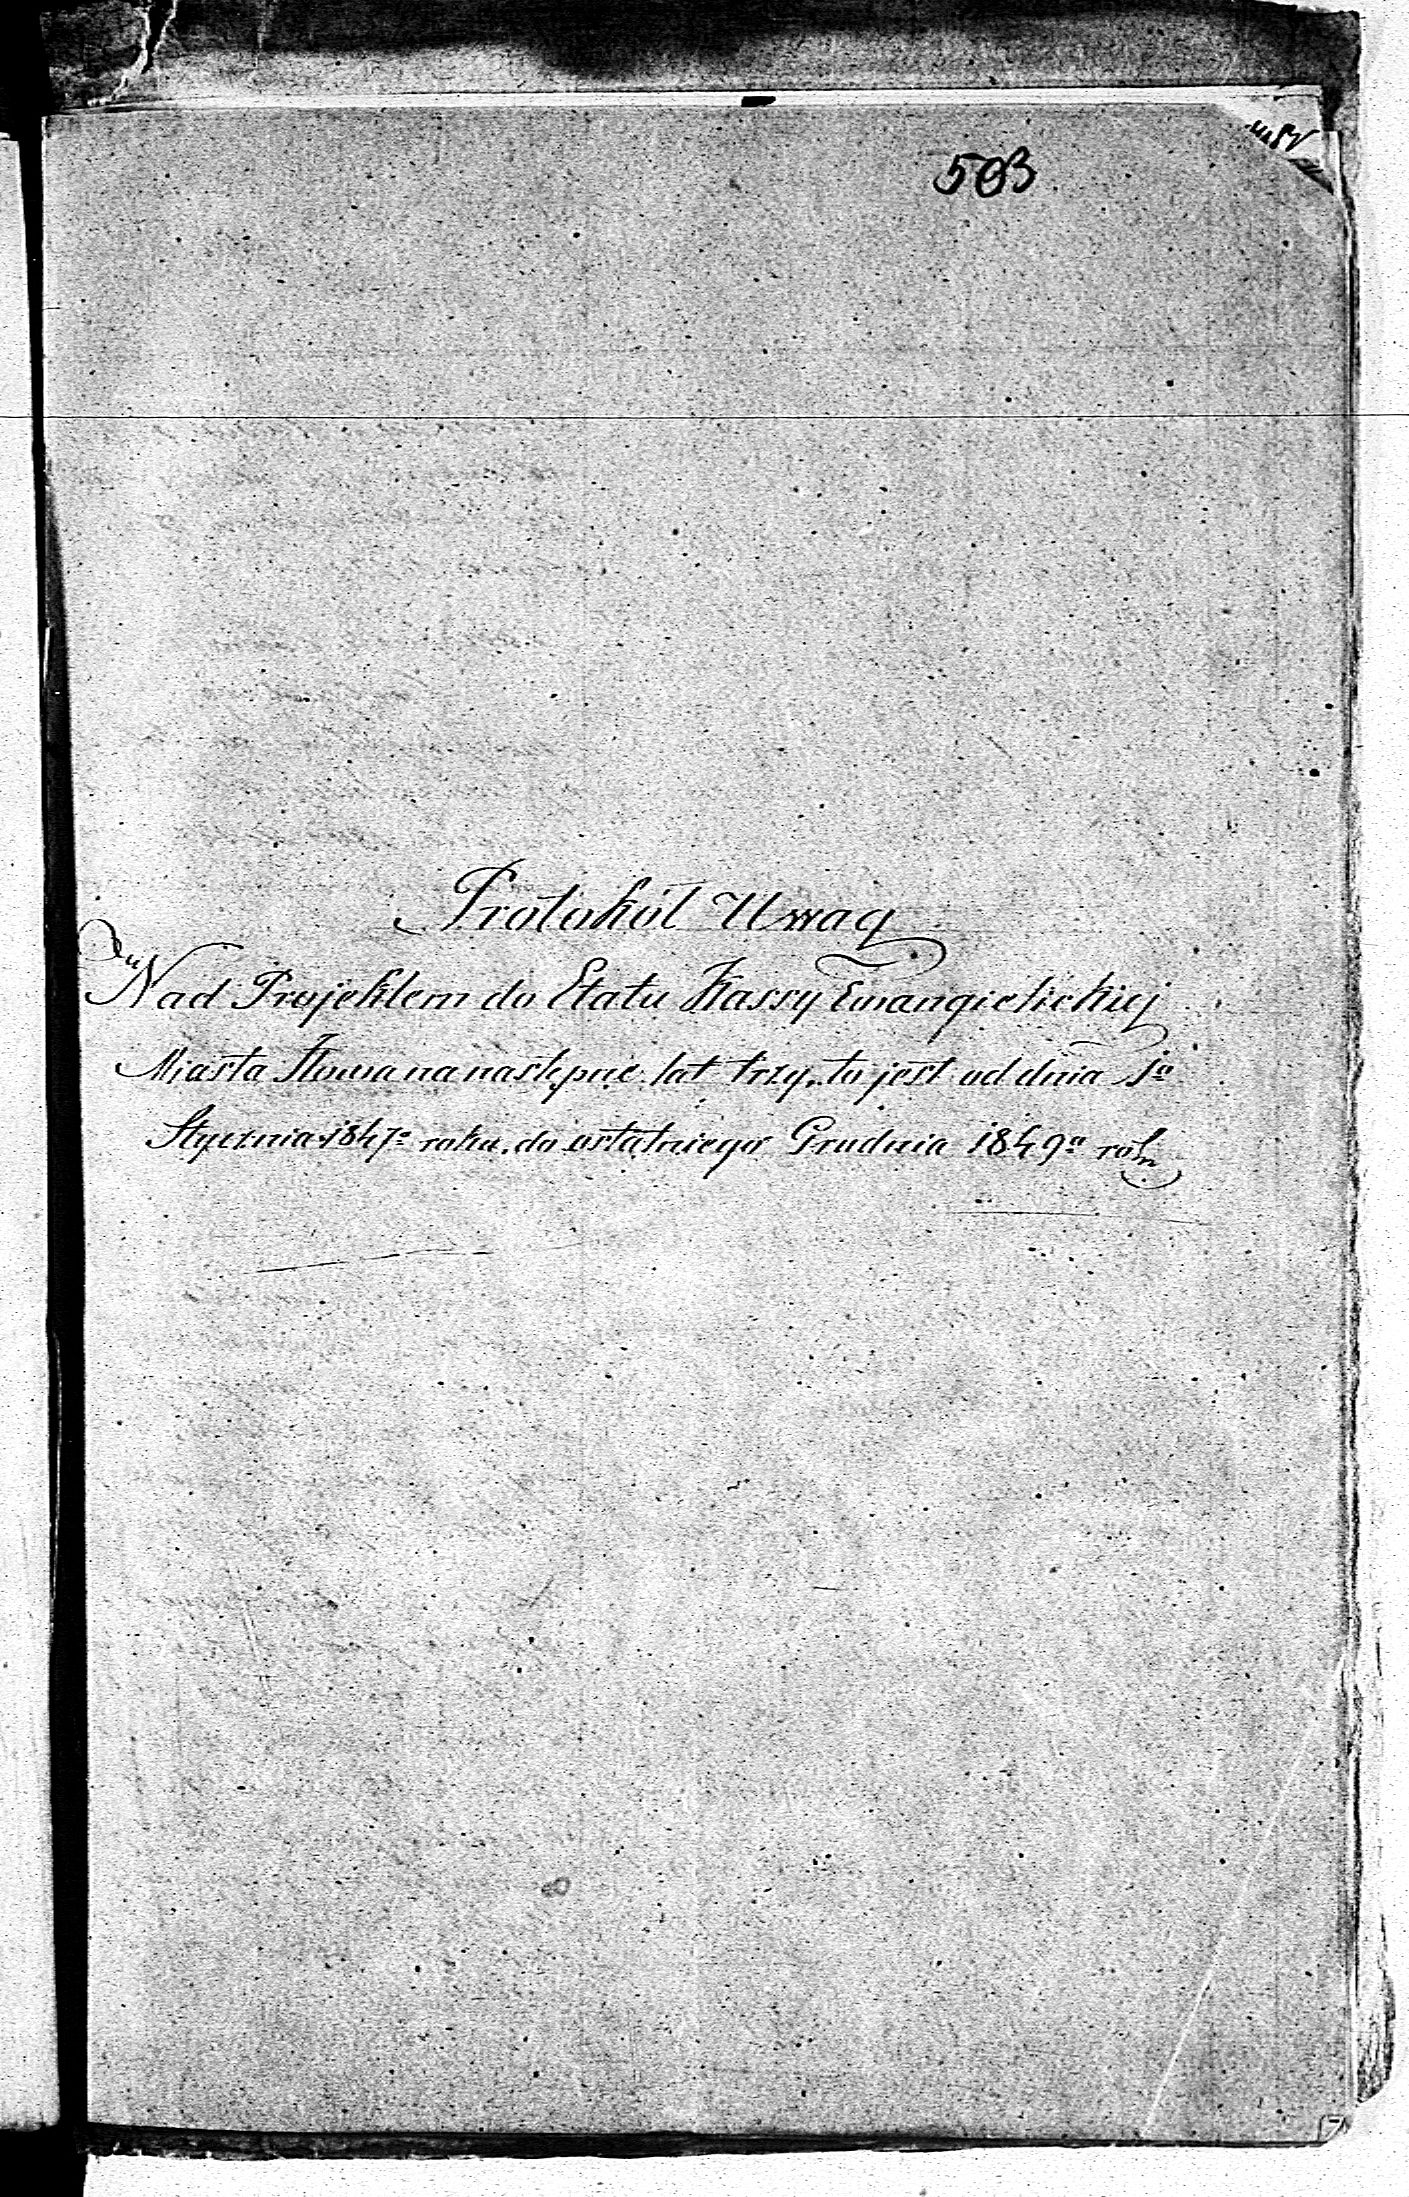 503
Protokół Uwag
Nad Projektem do Etatu Kassy Ewangielickiej
Miasta Iłowa na następne lat trzy, to jest od dnia 1º
Stycznia 1847º roku do ostatniego Grudnia 1849º roku